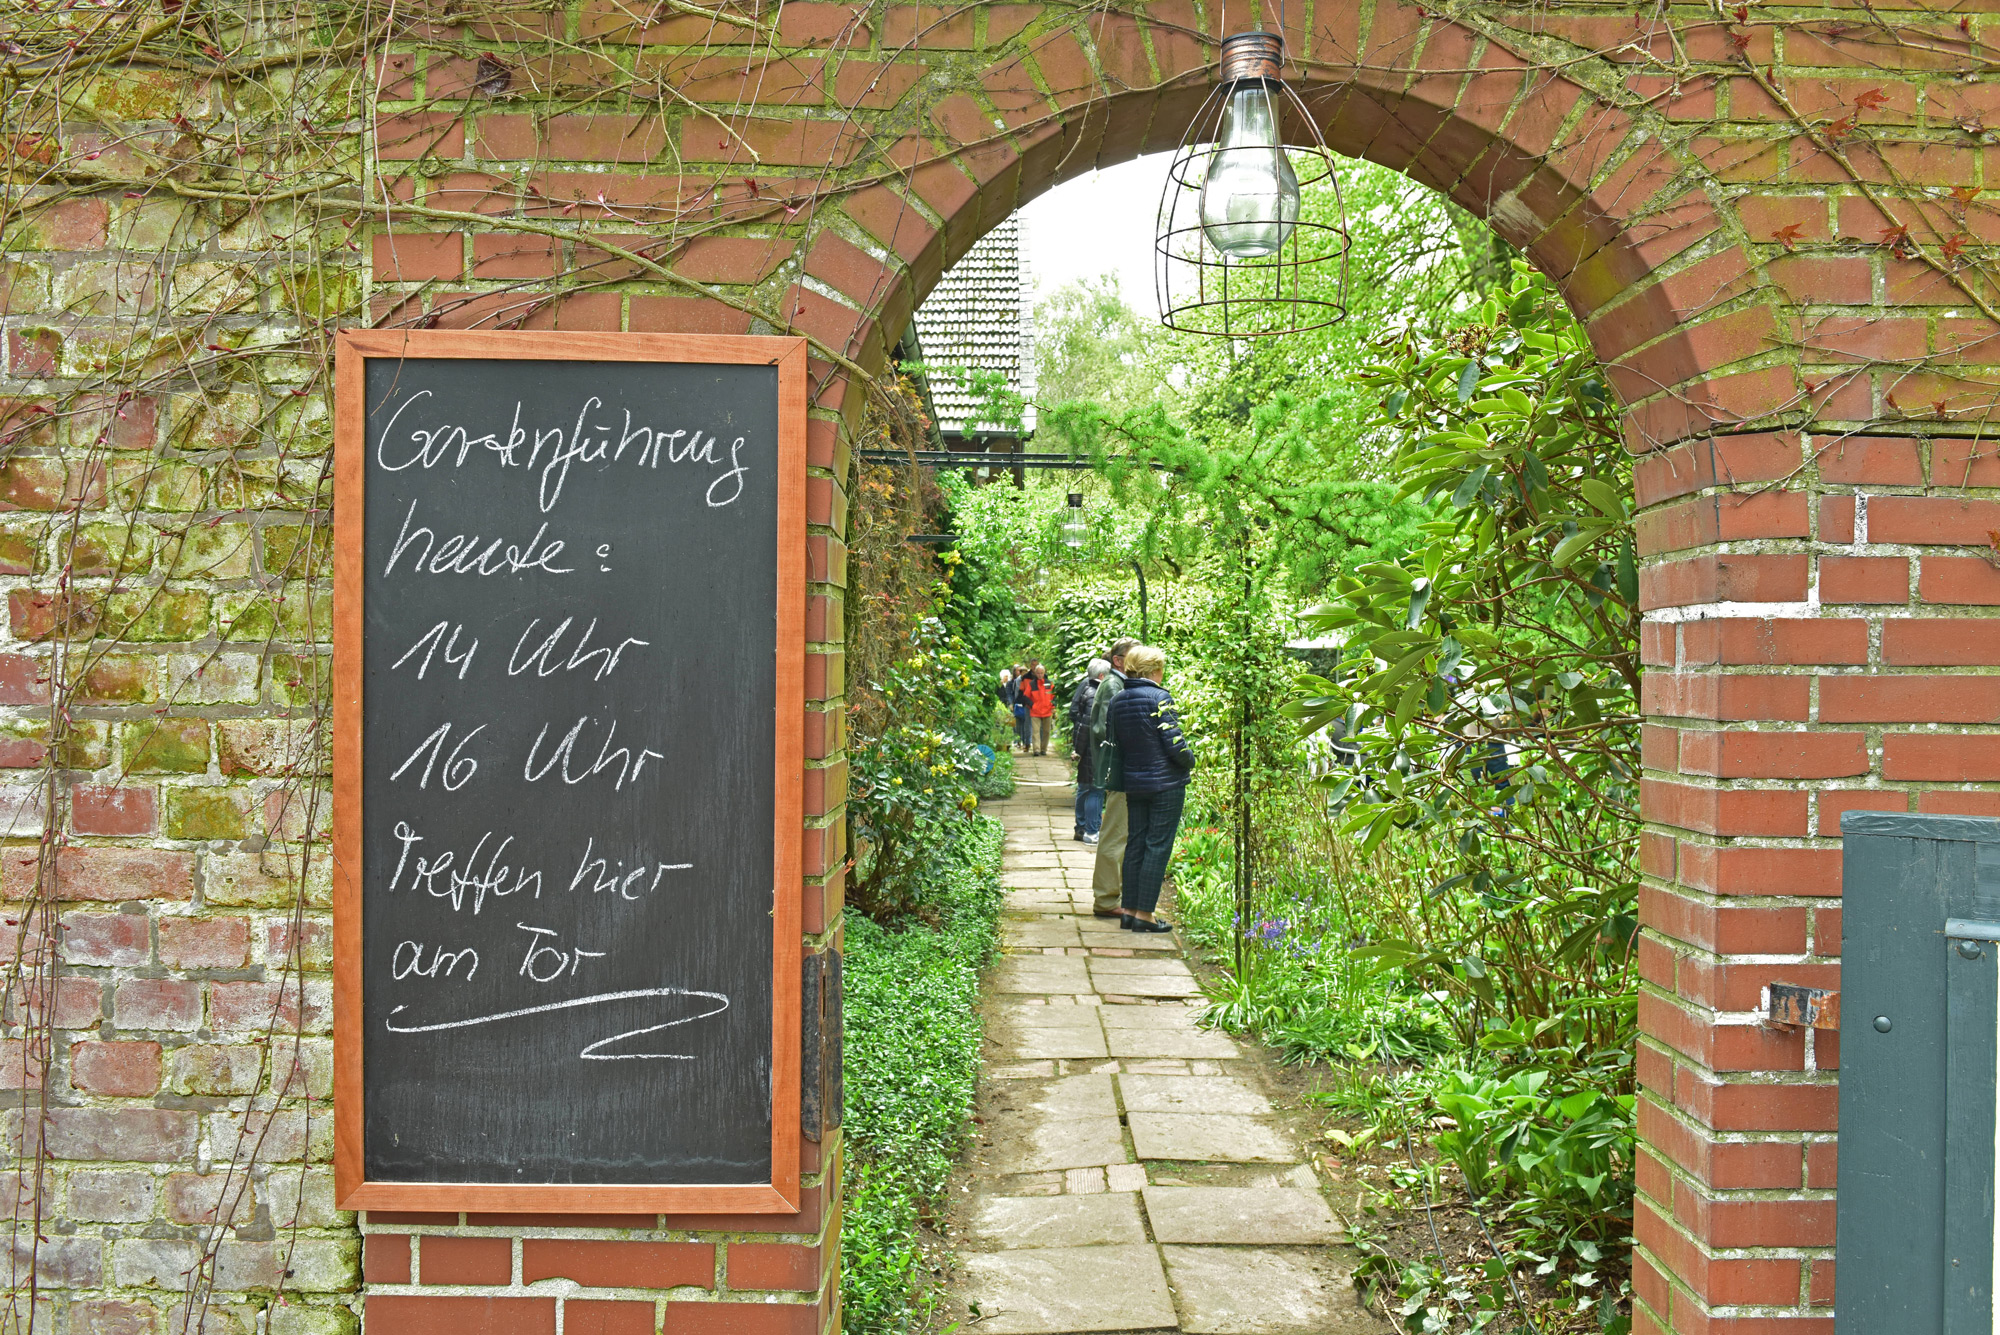 Gartenführung
heute:
14 Uhr
16 Uhr
Treffen hier
am Tor